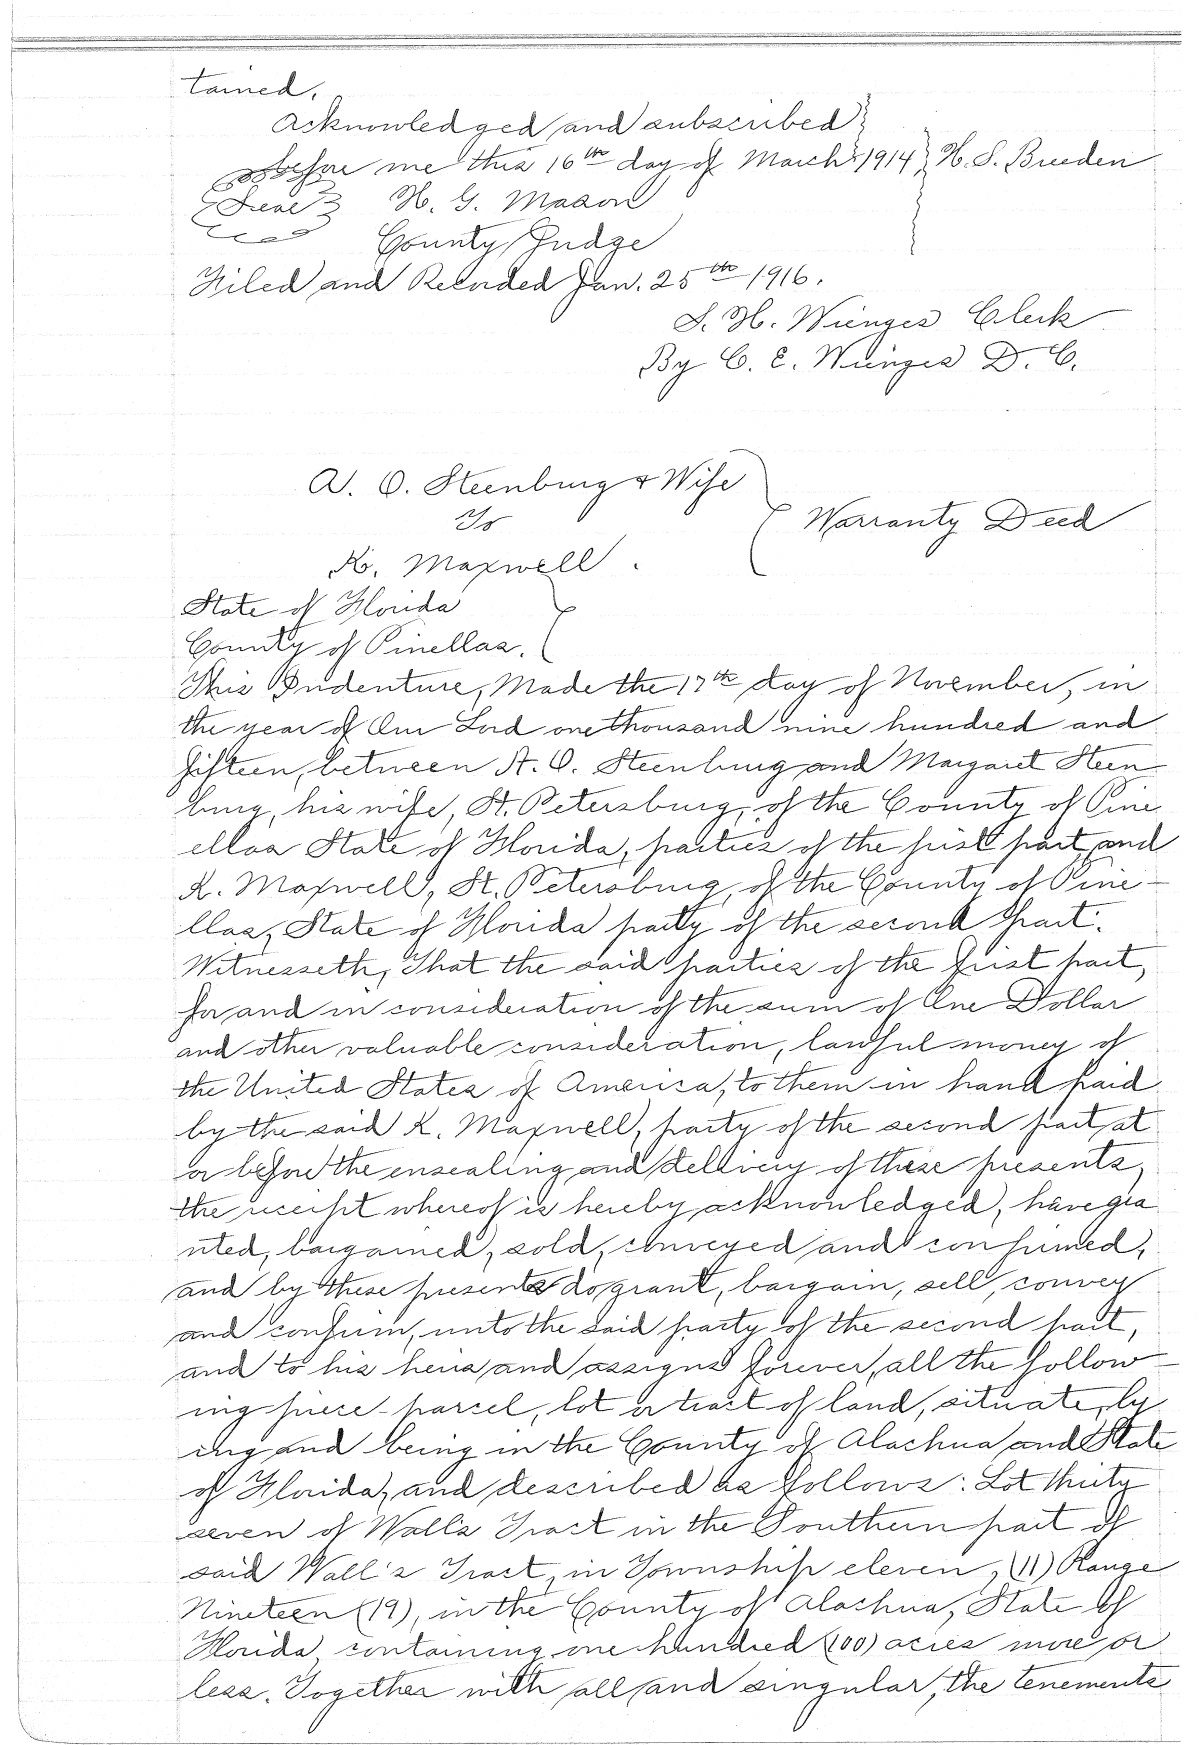 tained.
Acknowledged and subscribed
before me this 16th day of March 1914 H. S. Breeden
Seal H. G. Mason
County Judge
Filed and Recorded Jan. 25th 1916.
S. H. Wienges Clerk
By C. E. Wienges D. C.
A. O. Steenburg & Wife
To Warranty Deed
K. Maxwell.
State of Florida
County of Pinellas.
This Indenture, Made the 17th day of November, in
the year of Our Lord one thousand nine hundred and
fifteen, between A. O. Steenburg and Margaret Steen
burg, his wife, St. Petersburg, of the County of Pine
ellas State of Florida, parties of the first part, and
K. Maxwell, St. Petersburg, of the County of Pine-
llas, State of Florida party of the second part.
Witnesseth, That the said parties of the first part,
for and in consideration of the sum of One Dollar
and other valuable consideration, lawful money of
the United States of America, to them in hand paid
by the said K. Maxwell, party of the second part, at
or before the ensealing and delivery of these presents,
the receipt whereof is hereby acknowledged, have gra
nted, bargained, sold, conveyed and confirmed,
and by these presents do grant, bargain, sell, convey
and confirm, unto the said party of the second part,
and to his heirs and assigns forever, all the follow-
ing piece-parcel, lot or tract of land, situate, ly
ing and being in the County of Alachua and State
of Florida, and described as follows: Lot thirty
seven of Wall's Tract in the Southern part of
said Wall's Tract, in Township eleven, (11) Range
Nineteen (19), in the County of Alachua, State of
Florida, containing one hundred (100) acres more or
less. Together with all and singular, the tenements